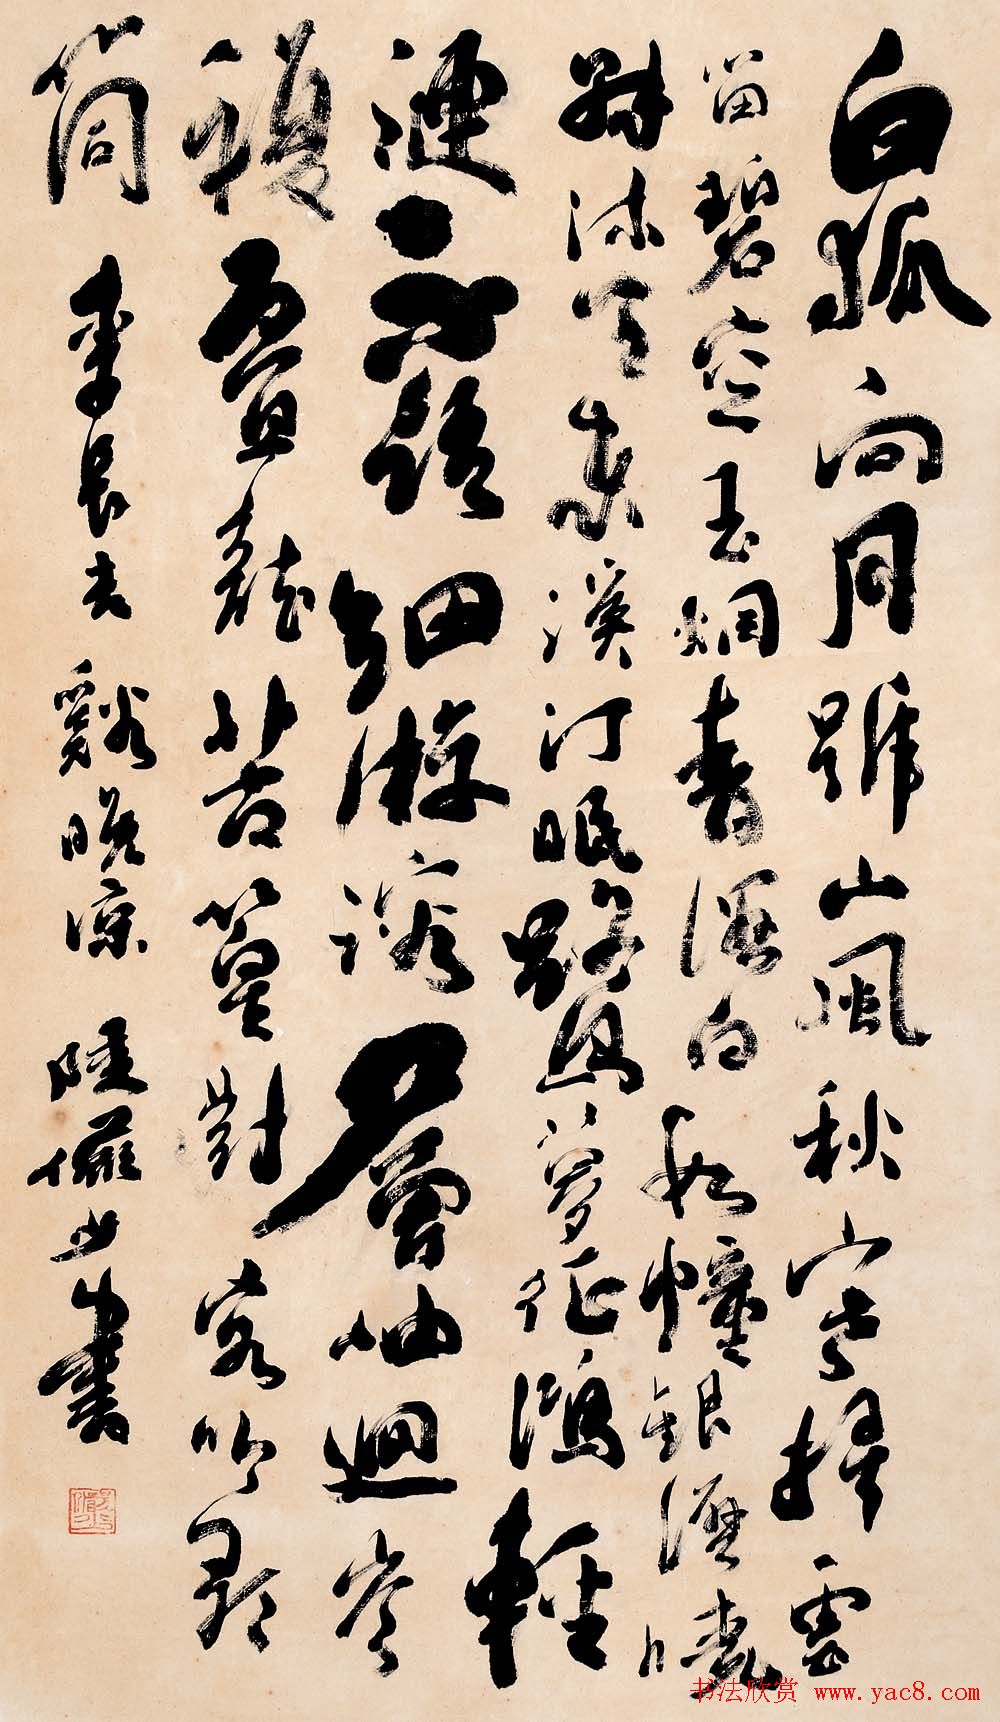 白狐向月號山風秋寒掃雲
留碧空玉烟青濕白如幢銀灣曉
轉流天東溪汀眠鷺夢征鴻輕
漣不語細游溶層岫迴岑
複疊龍苦篁對客吟歌
筒 李長吉谿晚涼 陸儼少書
书法欣赏 www.yac8.com